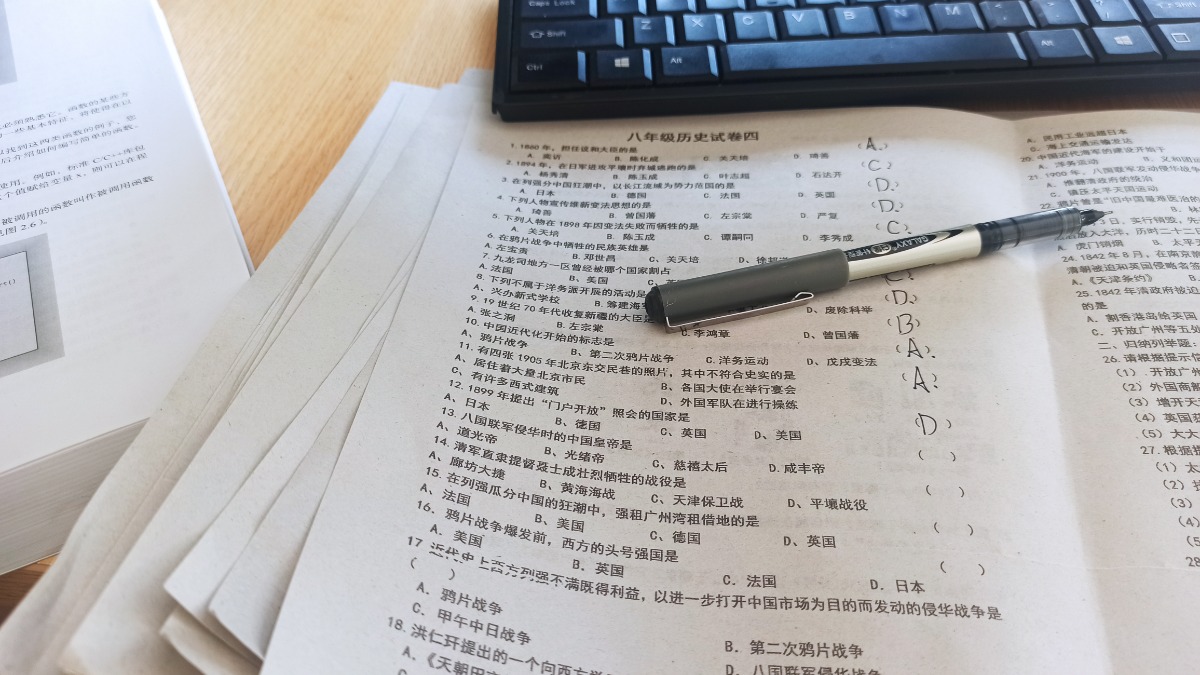 Caps Lock
Shift
Z
X
C
V
B
N
M
Shift
Ctrl
Alt
Alt
必须熟悉它。函数的某些方
一些基本特征，将使得在以
找到这两类函数的例子。您
后介绍如何编写简单的函数。
使用。例如，标准 C/C++库包
个值赋给变量 x，则可以在程
被调用的函数叫作被调用函数
图 2.6）。
八年级历史试卷四
1.1860年，担任议和大臣的是 （A.）
A. 奕䜣 B. 陈化成 C. 关天培 D. 琦善
2.1894年，在日军进攻平壤时弃城逃跑的是 （C）
A. 杨秀清 B. 陈玉成 C. 叶志超 D. 石达开
3.在列强分中国狂潮中，以长江流域为势力范围的是 （D.）
A. 日本 B. 德国 C. 法国 D. 英国
4.下列人物宣传维新变法思想的是 （D.）
A. 琦善 B. 曾国藩 C. 左宗棠 D. 严复
5.下列人物在 1898 年因变法失败而牺牲的是 （C.）
A. 关天培 B. 陈玉成 C. 谭嗣同 D. 李秀成
6.在鸦片战争中牺牲的民族英雄是
A. 左宝贵 B. 邓世昌 C. 关天培
7.九龙司地方一区曾经被哪个国家割占
A. 法国 B. 美国
8.下列不属于洋务派开展的活动是 （D.）
A、兴办新式学校 D、废除科举
9.19世纪70年代收复新疆的大臣是 （B）
A. 张之洞 B. 左宗棠 C. 李鸿章 D、曾国藩
10.中国近代化开始的标志是 （A.）
A、鸦片战争 B、第二次鸦片战争 C.洋务运动 D、戊戌变法
11.有四张1905年北京东交民巷的照片，其中不符合史实的是 （A.）
A、居住着大量北京市民 B、各国大使在举行宴会
C、有许多西式建筑 D、外国军队在进行操练
12.1899年提出“门户开放”照会的国家是 （D）
A、日本 B、德国 C、英国 D、美国
13.八国联军侵华时的中国皇帝是 （ ）
A、道光帝 B、光绪帝 C、慈禧太后 D.咸丰帝
14.清军直隶提督聂士成壮烈牺牲的战役是 （ ）
A、廊坊大捷 B、黄海海战 C、天津保卫战 D、平壤战役
15.在列强瓜分中国的狂潮中，强租广州湾租借地的是 （ ）
A、法国 B、美国 C、德国 D、英国
16.鸦片战争爆发前，西方的头号强国是 （ ）
A. 美国 B. 英国 C. 法国 D. 日本
17.近代史上西方列强不满既得利益，以进一步打开中国市场为目的而发动的侵华战争是
（ ）
A. 鸦片战争 B. 第二次鸦片战争
C. 甲午中日战争 D. 八国联军侵华战争
18.洪仁玕提出的一个向西方学
A.《天朝田
A. 民用工业远超日本
C. 海上交通运输发达
20.中国近代海军的建设开始于
A. 洋务运动 B. 义和团
21.1900年，八国联军发动侵华战争
A. 推翻清政府的统治
C. 镇压太平天国运动
A. 虎门销烟 B. 太平
24.1842年8月，在南京
清朝被迫和英国侵略者
A.《天津条约》 B.
25.1842年清政府被迫
的是
A. 割香港岛给英国
C. 开放广州等五处
二、归纳列举题：
26.请根据提示信
（1）.开放广州
（2）外国商船
（3）增开天
（4）英国获
（5）大大
27.根据
（1）太
（2）
（3）
（4）
（5
28
GALAXY